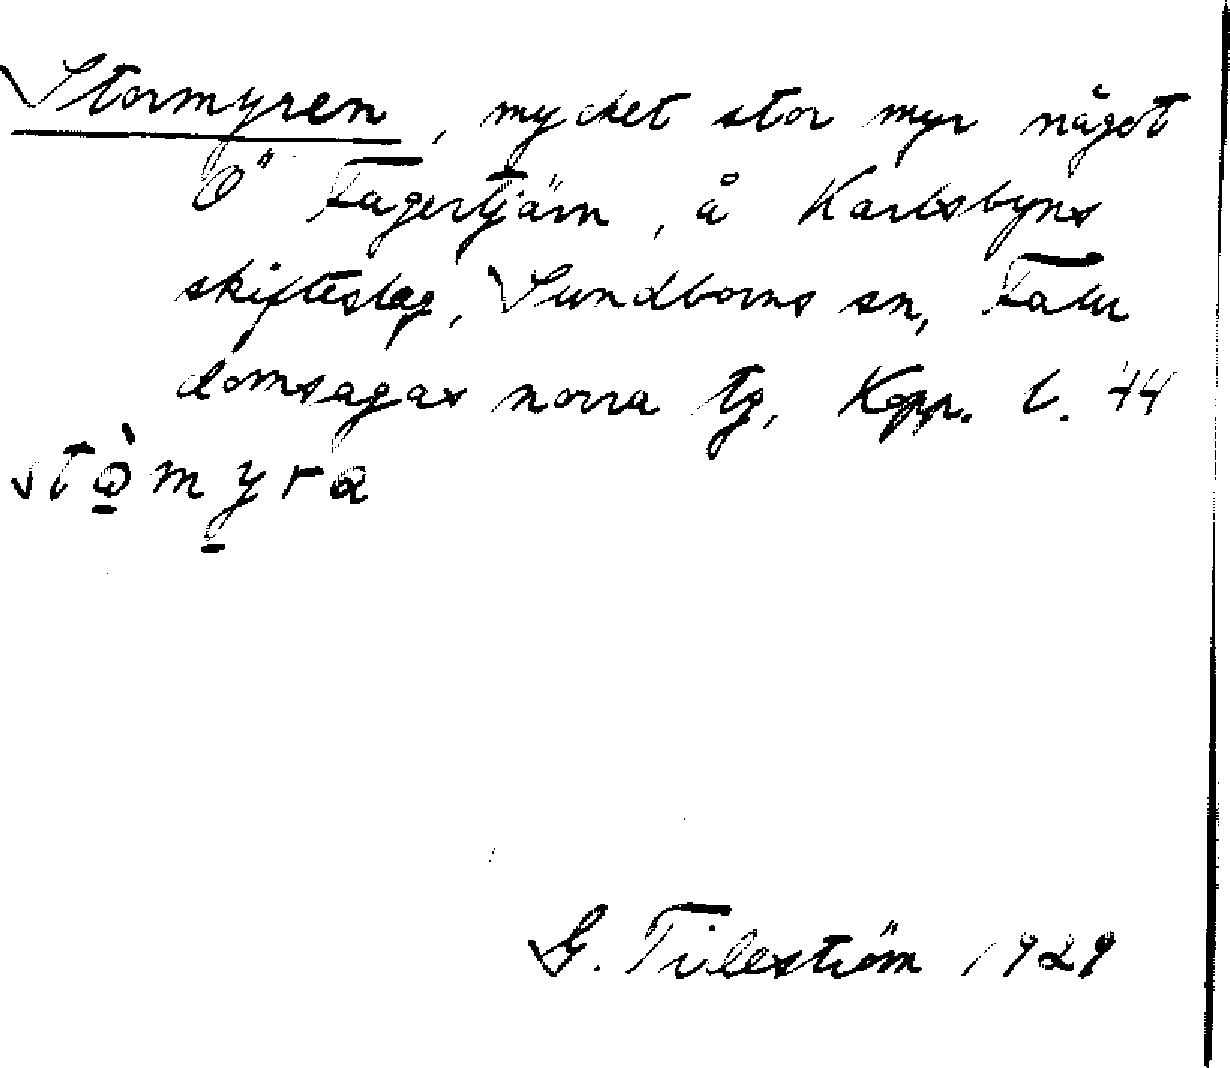 Stormyren, mycket stor myr något
Ö Fagertjärn, å Karlsbyns
skifteslag, Sundborns sn, Falu
domsagas norra tg, Kopp. l. 44
stò̱my̱ra
G. Tileström 1929